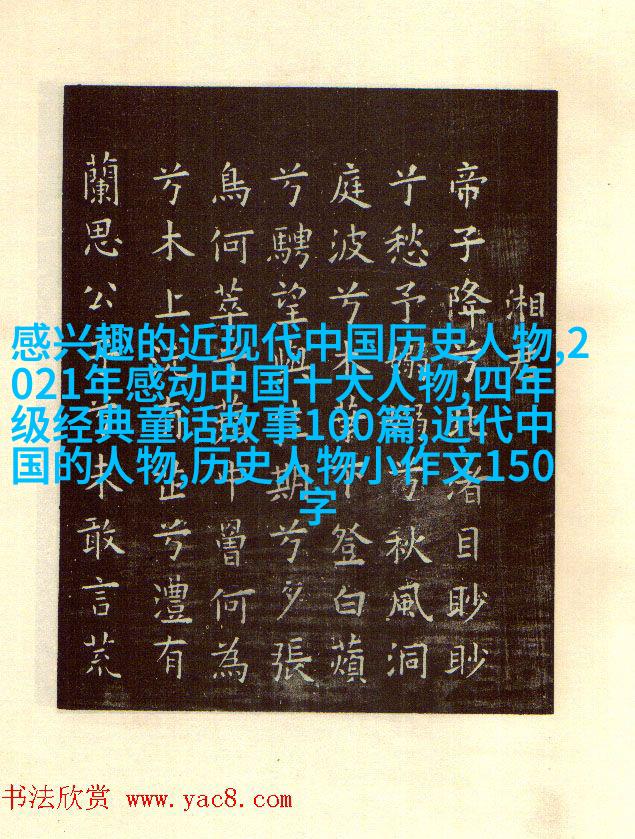 湘君
帝子降兮北渚目眇眇
兮愁予嫋嫋兮秋風洞
庭波兮木葉下登白蘋
兮騁望與佳期兮夕張
鳥何萃兮蘋中罾何為
兮木上沅有芷兮澧有
蘭思公子兮未敢言荒
感兴趣的近现代中国历史人物,2
021年感动中国十大人物,四年
级经典童话故事100篇,近代中
国的人物,历史人物小作文150
字
书法欣赏 www.yac8.com